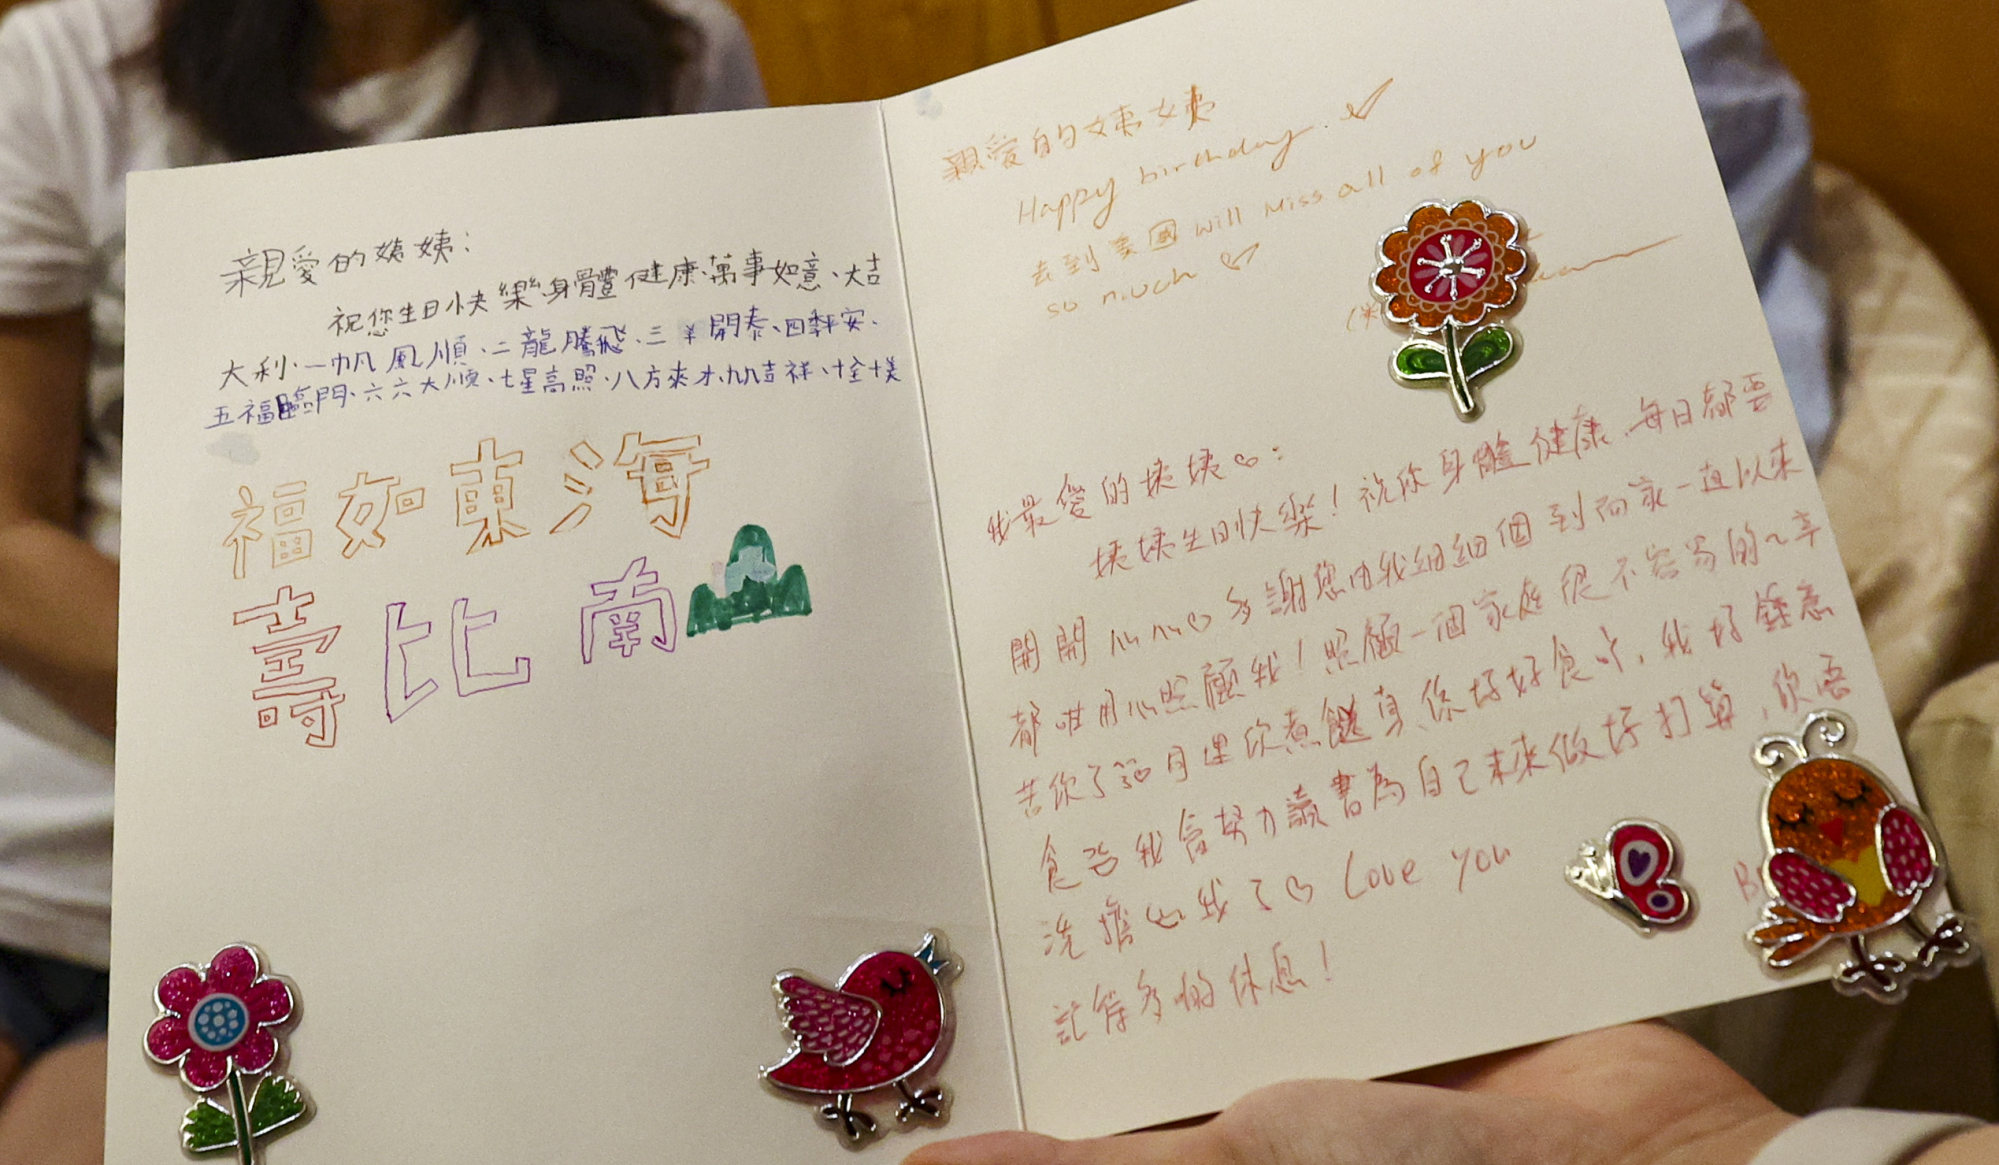 親愛的姨姨：
祝您生日快樂、身體健康、萬事如意、大吉
大利、一帆風順、二龍騰飛、三羊開泰、四季平安、
五福臨門、六六大順、七星高照、八方來才、九九吉祥、十全十美
福如東海
壽比南
親愛的姨姨
Happy birthday.
去到美國 will miss all of you
so much
我最愛的姨姨：
姨姨生日快樂！祝你身體健康、每日都要
開開心心多謝您由我細細個到而家一直以來
都咁用心照顧我！照顧一個家庭很不容易的~辛
苦你了 你煮餸真係好好食吖，我好鍾意
食 我會努力讀書為自己未來做好打算，你唔
洗擔心我了 Love you
記得多的休息！